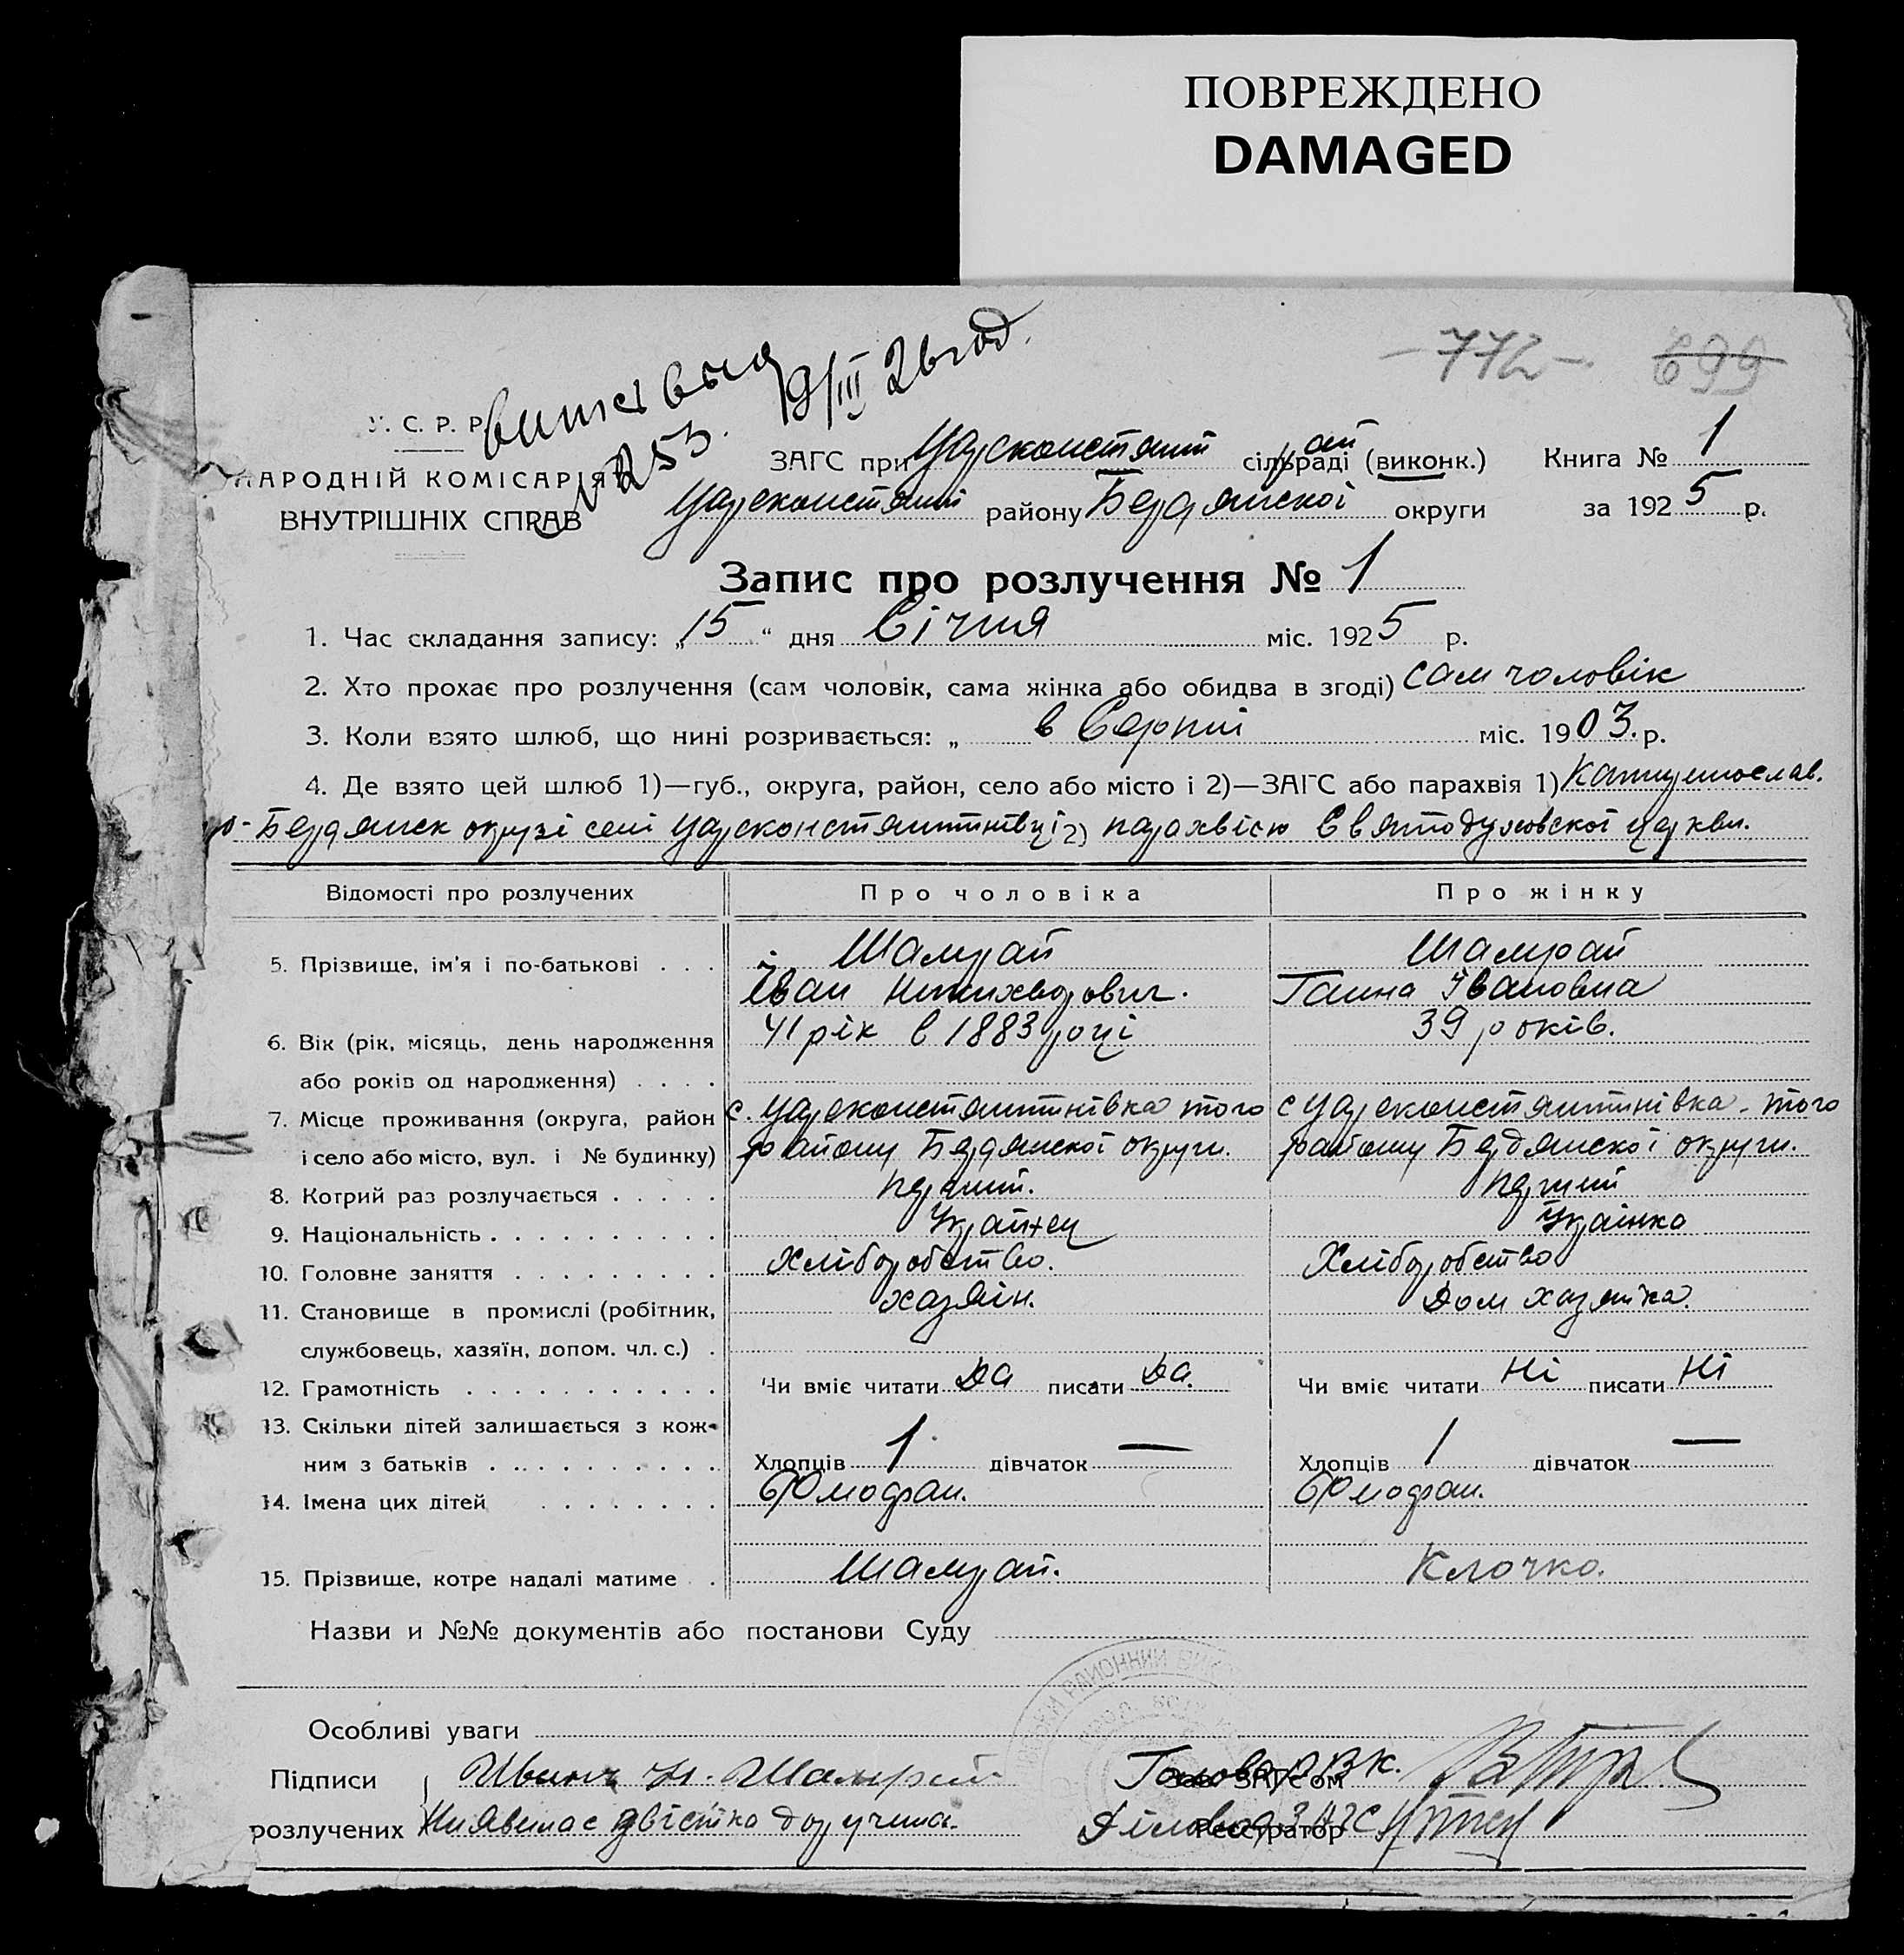 ПОВРЕЖДЕНО
DAMAGED
— 772 — 699
19/III 26 год.
253.
У. С. Р. Р.
НАРОДНІЙ КОМІСАРІЯТ
ВНУТРІШНІХ СПРАВ
ЗАГС при Цареконстянт рай сільраді (виконк.) Книга № 1
Царсконстянт району Бердянської округи за 1925 р.
Запис про розлучення № 1
1. Час складання запису: „15“ дня Січня міс. 1925 р.
2. Хто прохає про розлучення (сам чоловік, сама жінка або обидва в згоді) сам чоловік
3. Коли взято шлюб, що нині розривається: „ в Серпні міс. 1903. р.
4. Де взято цей шлюб 1)—губ., округа, район, село або місто і 2)—ЗАГС або парахвія 1) Катеринослав.
Бердянск окрузі селі Царсконстянтинівці 2) парахвією Святодуховської церкви.
Відомості про розлучених Про чоловіка Про жінку
5. Прізвище, ім'я і по-батькові . . . Шамрай Шамрай
Іван Никихворович. Ганна Івановна
6. Вік (рік, місяць, день народження 41 рік в 1883 році 39 років.
або років од народження) . . . .
7. Місце проживання (округа, район с. Царсконстянтинівка того с Царсконстянтинівка - того
і село або місто, вул. і № будинку) району Бердянської округи. району Бердянської округи.
8. Котрий раз розлучається . . . . . перший. перший
9. Національність . . . . . . . . . . Українец Українка
10. Головне заняття . . . . . . . . . Хліборобство. Хліборобство
11. Становище в промислі (робітник, хазяін. Дом хазяйка.
службовець, хазяїн, допом. чл. с.) .
12. Грамотність . . . . . . . . . . . Чи вміє читати Да писати Да. Чи вміє читати Ні писати Ні
13. Скільки дітей залишається з кож-
ним з батьків . . . . . . . . . . Хлопців 1 дівчаток — Хлопців 1 дівчаток —
14. Імена цих дітей . . . . . . . .
15. Прізвище, котре надалі матиме . . Шамрай. Клочко.
Назви и №№ документів або постанови Суду
Особливі уваги
РАЙОННИЙ
Підписи Иванъ Н. Шамрай Голова РВК. Зав. ЗАГСом
розлучених Ниявилас звістка доручина. Діловод Реєстратор